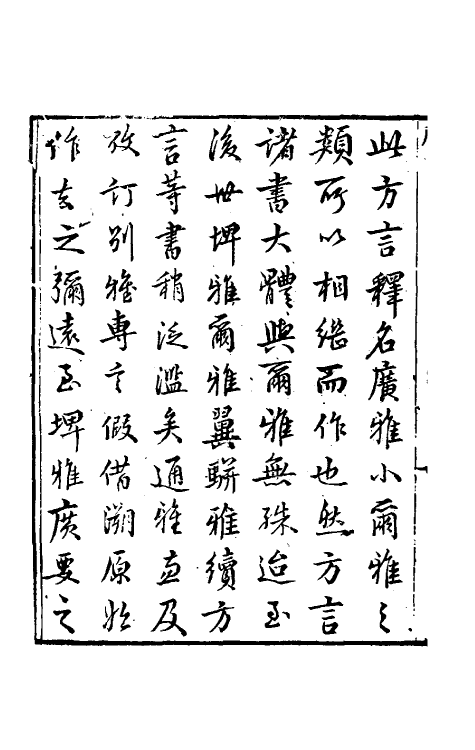 此方言釋名廣雅小爾雅之
類所以相繼而作也然方言
諸書大體與爾雅無殊迨至
後世埤雅爾雅翼駢雅續方
言等書稍泛濫矣通雅直及
攷訂別雅專言假借溯原始
作去之彌遠至埤雅廣要之